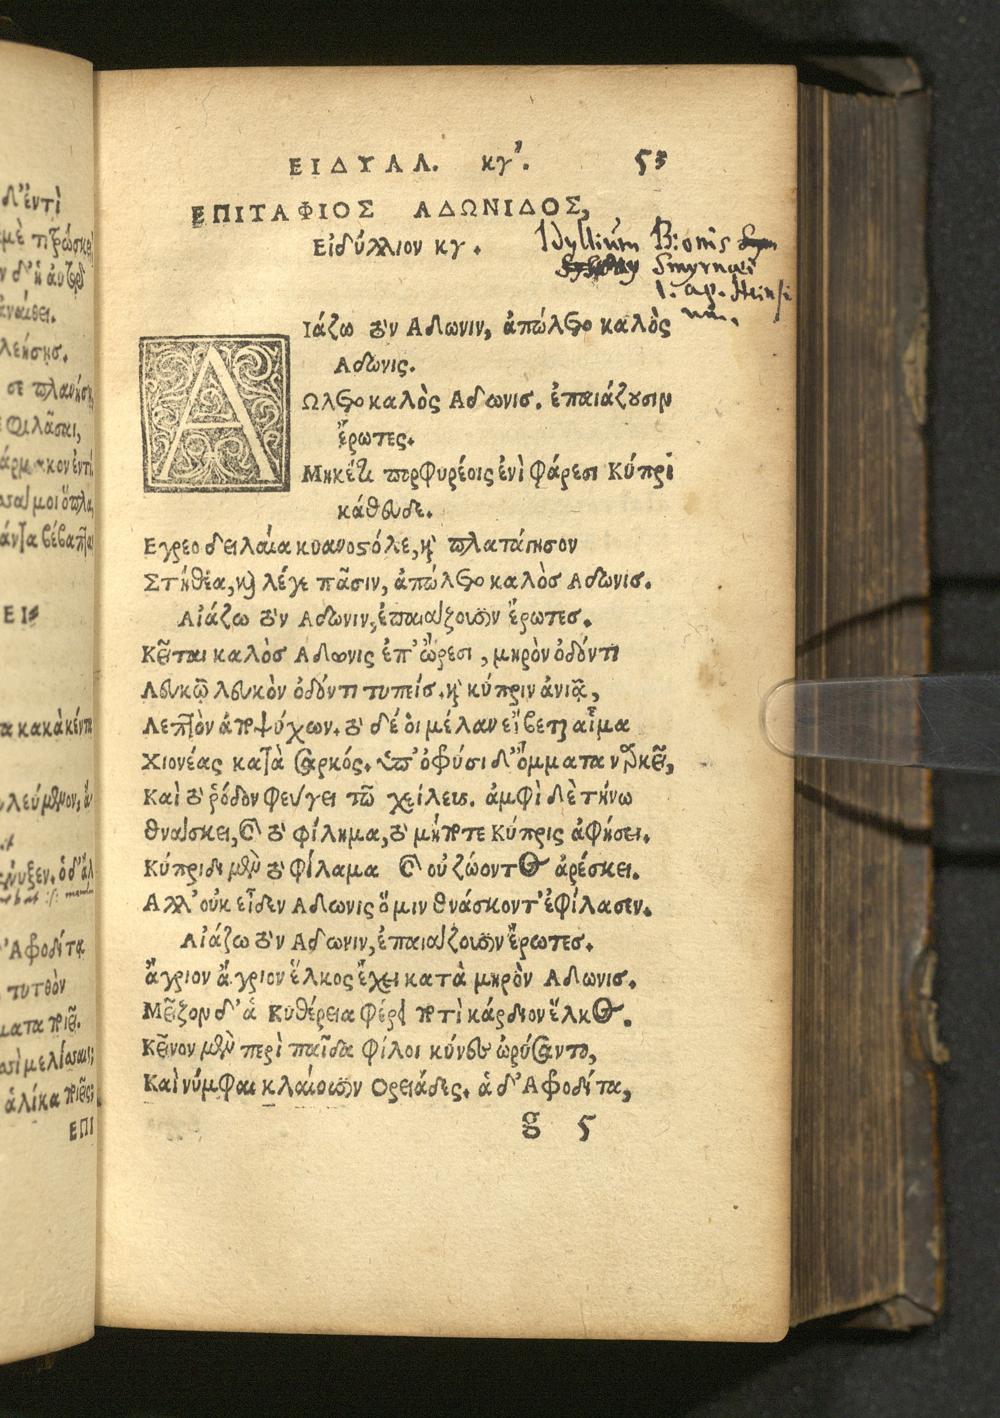 ΕΙΔΥΛΛ. κγ'. 53
ΕΠΙΤΑΦΙΟΣ ΑΔΩΝΙΔΟΣ,
Εἰδύλλιον κγ.
Idyllium Bionis
Smyrnaei
1. ap. Heinsi
um.
ΑΙάζω τὸν Αδωνιν, ἀπώλετο καλὸς
Αδωνις.
Ωλετο καλὸς Αδωνισ. ἐπαιάζουσιν
ἔρωτες.
Μηκέτι πορφυρέοις ἐνὶ φάρεσι Κύπρι
κάθευδε.
Εγρεο δειλαία κυανοστόλε, καὶ πλατάγησον
Στήθεα, καὶ λέγε πᾶσιν, ἀπώλετο καλὸσ Αδωνισ.
Αἰάζω τὸν Αδωνιν, ἐπαιάζουσιν ἔρωτεσ.
Κεῖται καλὸσ Αδωνις ἐπ' ὤρεσι, μηρὸν ὀδόντι
Λευκῷ λευκὸν ὀδόντι τυπείσ. καὶ κύπριν ἀνιᾷ,
Λεπτὸν ἀποψύχων. τὸ δέ οἱ μέλαν εἴβεται αἷμα
Χιονέας κατὰ σαρκός. ὑπ' ὀφρύσι δ' ὄμματα ναρκεῖ,
Καὶ τὸ ῥόδον φεύγει τῶ χείλεος. ἀμφὶ δὲ τήνω
θνάσκει, καὶ τὸ φίλημα, τὸ μήποτε Κύπρις ἀφήσει.
Κύπριδι μὲν τὸ φίλαμα καὶ οὐ ζώοντος ἀρέσκει.
Αλλ' οὐκ εἶδεν Αδωνις ὅ μιν θνάσκοντ' ἐφίλασεν.
Αἰάζω τὸν Αδωνιν, ἐπαιάζουσιν ἔρωτεσ.
ἄγριον ἄγριον ἕλκος ἔχει κατὰ μηρὸν Αδωνισ.
Μεῖζον δ' ἁ Κυθέρεια φέρει ποτὶ κάρδιον ἕλκος.
Κεῖνον μὲν περὶ παῖδα φίλοι κύνες ὠρύσαντο,
Καὶ νύμφαι κλαίουσιν Ορειάδες. ἁ δ' Αφροδίτα,
g 5